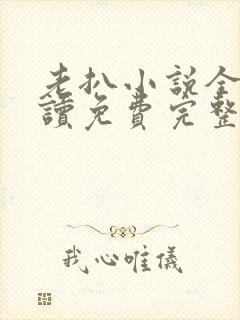 老扒小说全
讀免費完整
我心唯儀